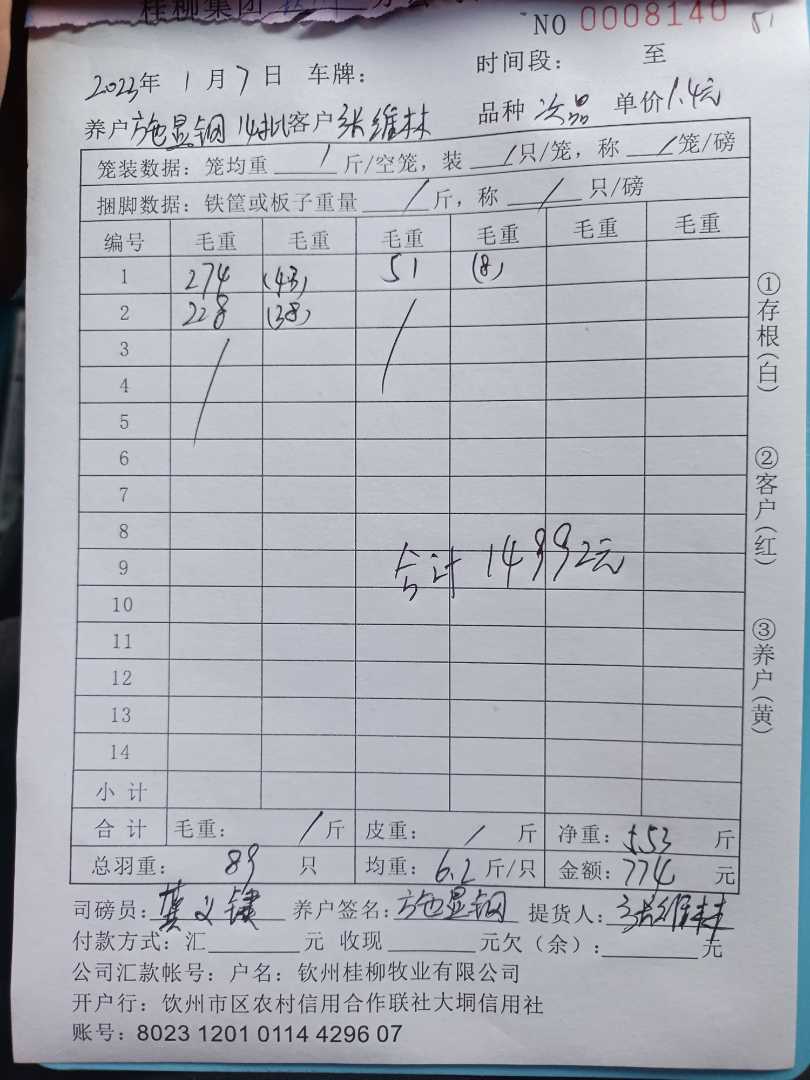 桂柳集团
NO 0008140 81
2023年1月7日 车牌： 时间段： 至
养户施显钢14批客户张维林 品种 次品 单价1.4元
笼装数据：笼均重 / 斤/空笼，装 / 只/笼，称 / 笼/磅
捆脚数据：铁筐或板子重量 / 斤，称 / 只/磅
编号 毛重 毛重 毛重 毛重 毛重 毛重
1 274 (43) 51 (8)
2 228 (38) /
3 /
4
5
6
7
8
9 合计 14992元
10
11
12
13
14
小计
合计 毛重： / 斤 皮重： / 斤 净重：553 斤
总羽重： 89 只 均重：6.2 斤/只 金额：774 元
司磅员：莫义键 养户签名：施显钢 提货人：张维林
付款方式：汇 元 收现 元欠（余）： 元
公司汇款帐号：户名：钦州桂柳牧业有限公司
开户行：钦州市区农村信用合作联社大垌信用社
账号：8023 1201 0114 4296 07
①存根（白）
②客户（红）
③养户（黄）